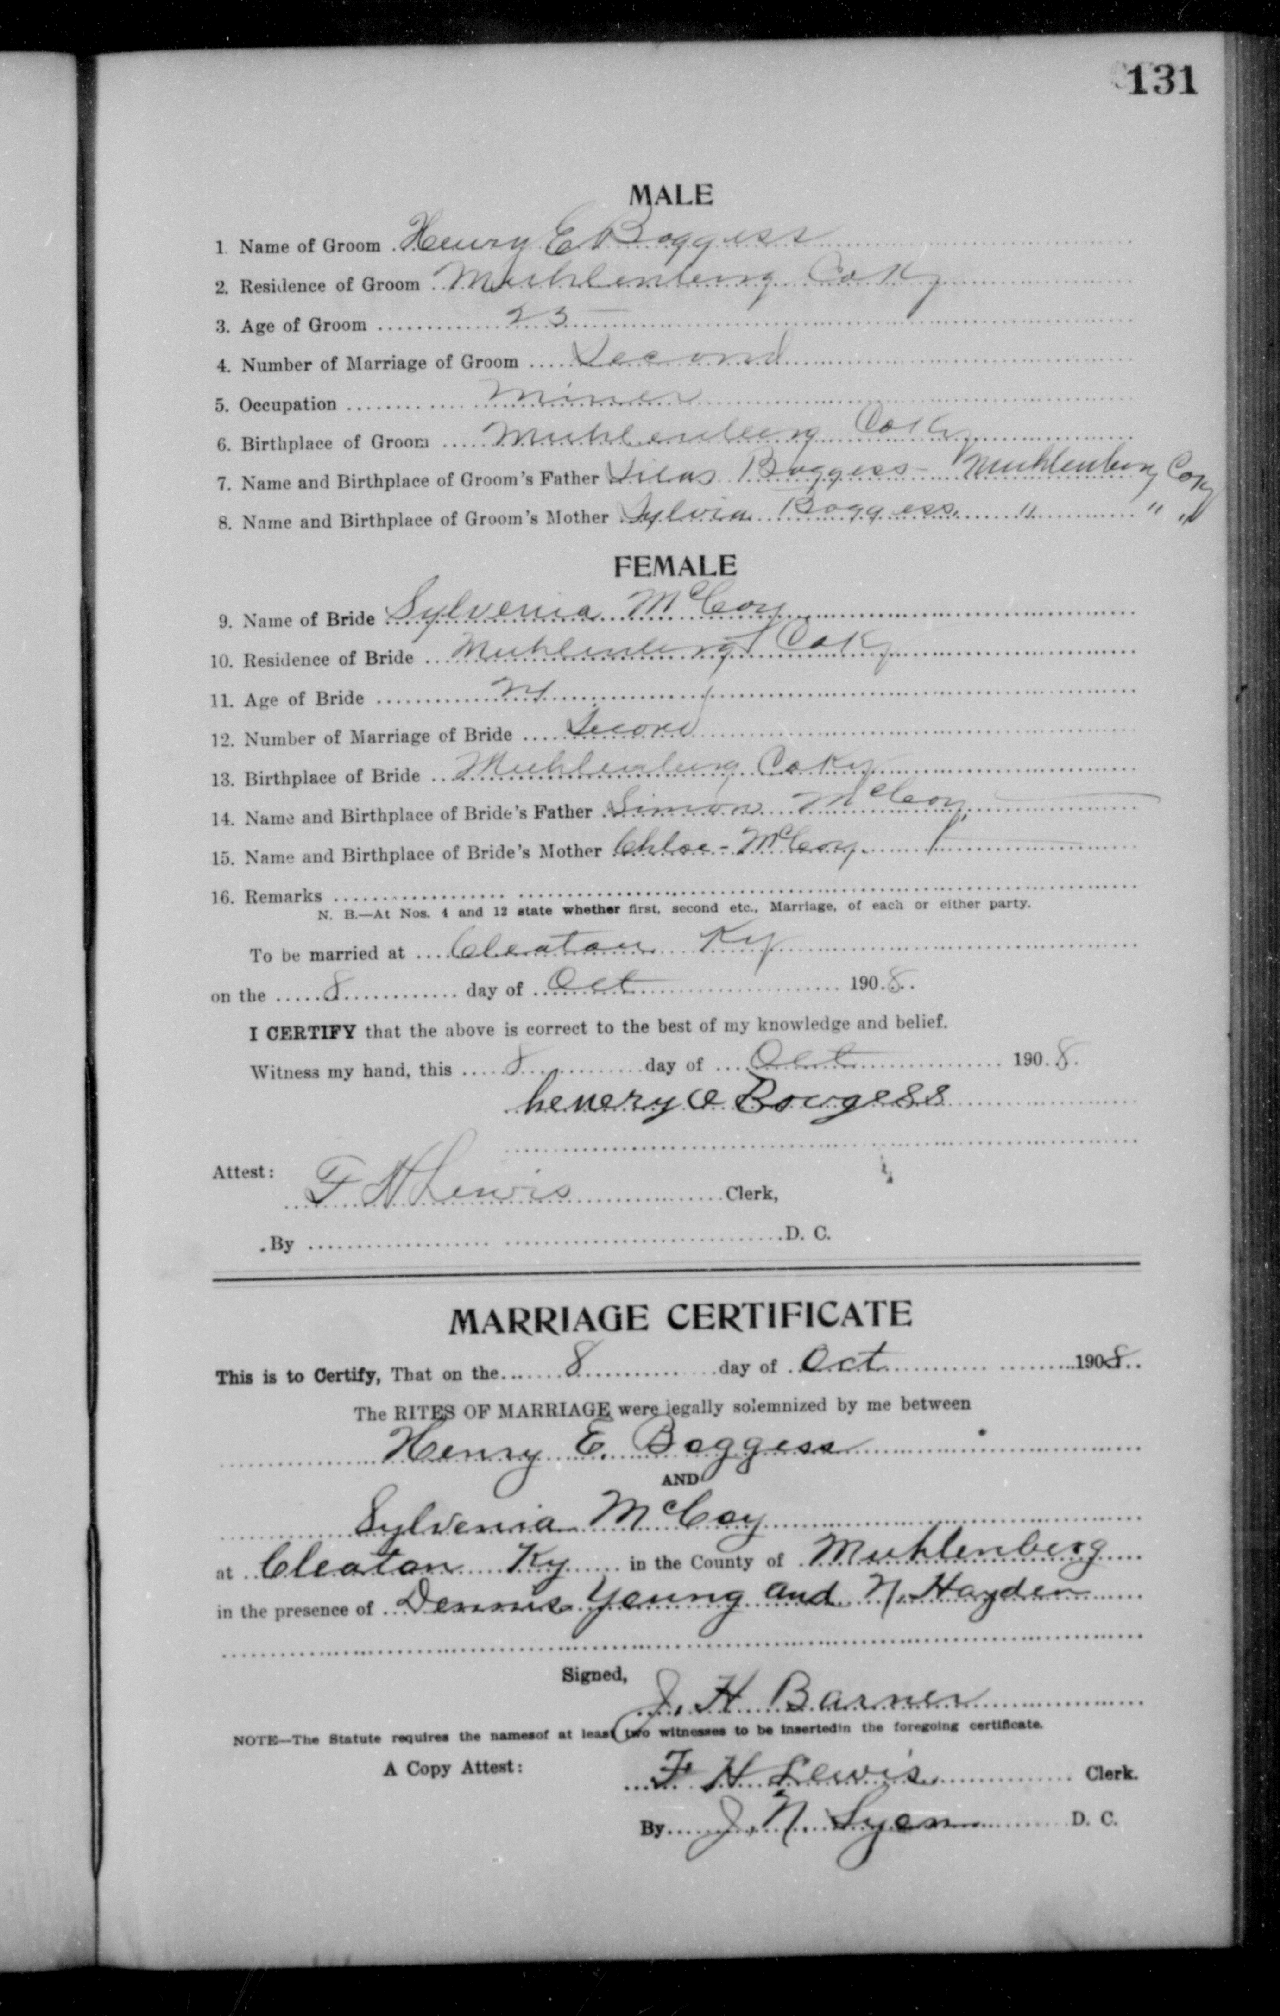 131
MALE
1. Name of Groom Henry E Boggess
2. Residence of Groom Muhlenberg Co Ky
3. Age of Groom 23
4. Number of Marriage of Groom Second
5. Occupation Miner
6. Birthplace of Groom Muhlenberg Co Ky
7. Name and Birthplace of Groom's Father Silas Boggess - Muhlenberg Co Ky
8. Name and Birthplace of Groom's Mother Sylvia Boggess " " "
FEMALE
9. Name of Bride Sylvenia McCoy
10. Residence of Bride Muhlenberg Co Ky
11. Age of Bride
12. Number of Marriage of Bride Second
13. Birthplace of Bride Muhlenberg Co Ky
14. Name and Birthplace of Bride's Father Simon McCoy
15. Name and Birthplace of Bride's Mother Chloe - McCoy
16. Remarks
N. B.—At Nos. 4 and 12 state whether first, second etc., Marriage, of each or either party.
To be married at Cleaton Ky
on the 8 day of Oct 1908.
I CERTIFY that the above is correct to the best of my knowledge and belief.
Witness my hand, this 8 day of Oct 1908.
henery e Bowgess
Attest:
F H Lewis Clerk,
By D. C.
MARRIAGE CERTIFICATE
This is to Certify, That on the 8 day of Oct 1908.
The RITES OF MARRIAGE were legally solemnized by me between
Henry E. Boggess
AND
Sylvenia McCoy
at Cleaton Ky in the County of Muhlenberg
in the presence of Dennis Young and N. Hayden
Signed,
J. H Barner
NOTE—The Statute requires the namesof at least two witnesses to be insertedin the foregoing certificate.
A Copy Attest:
F H Lewis. Clerk.
By J. N. Lyen D. C.